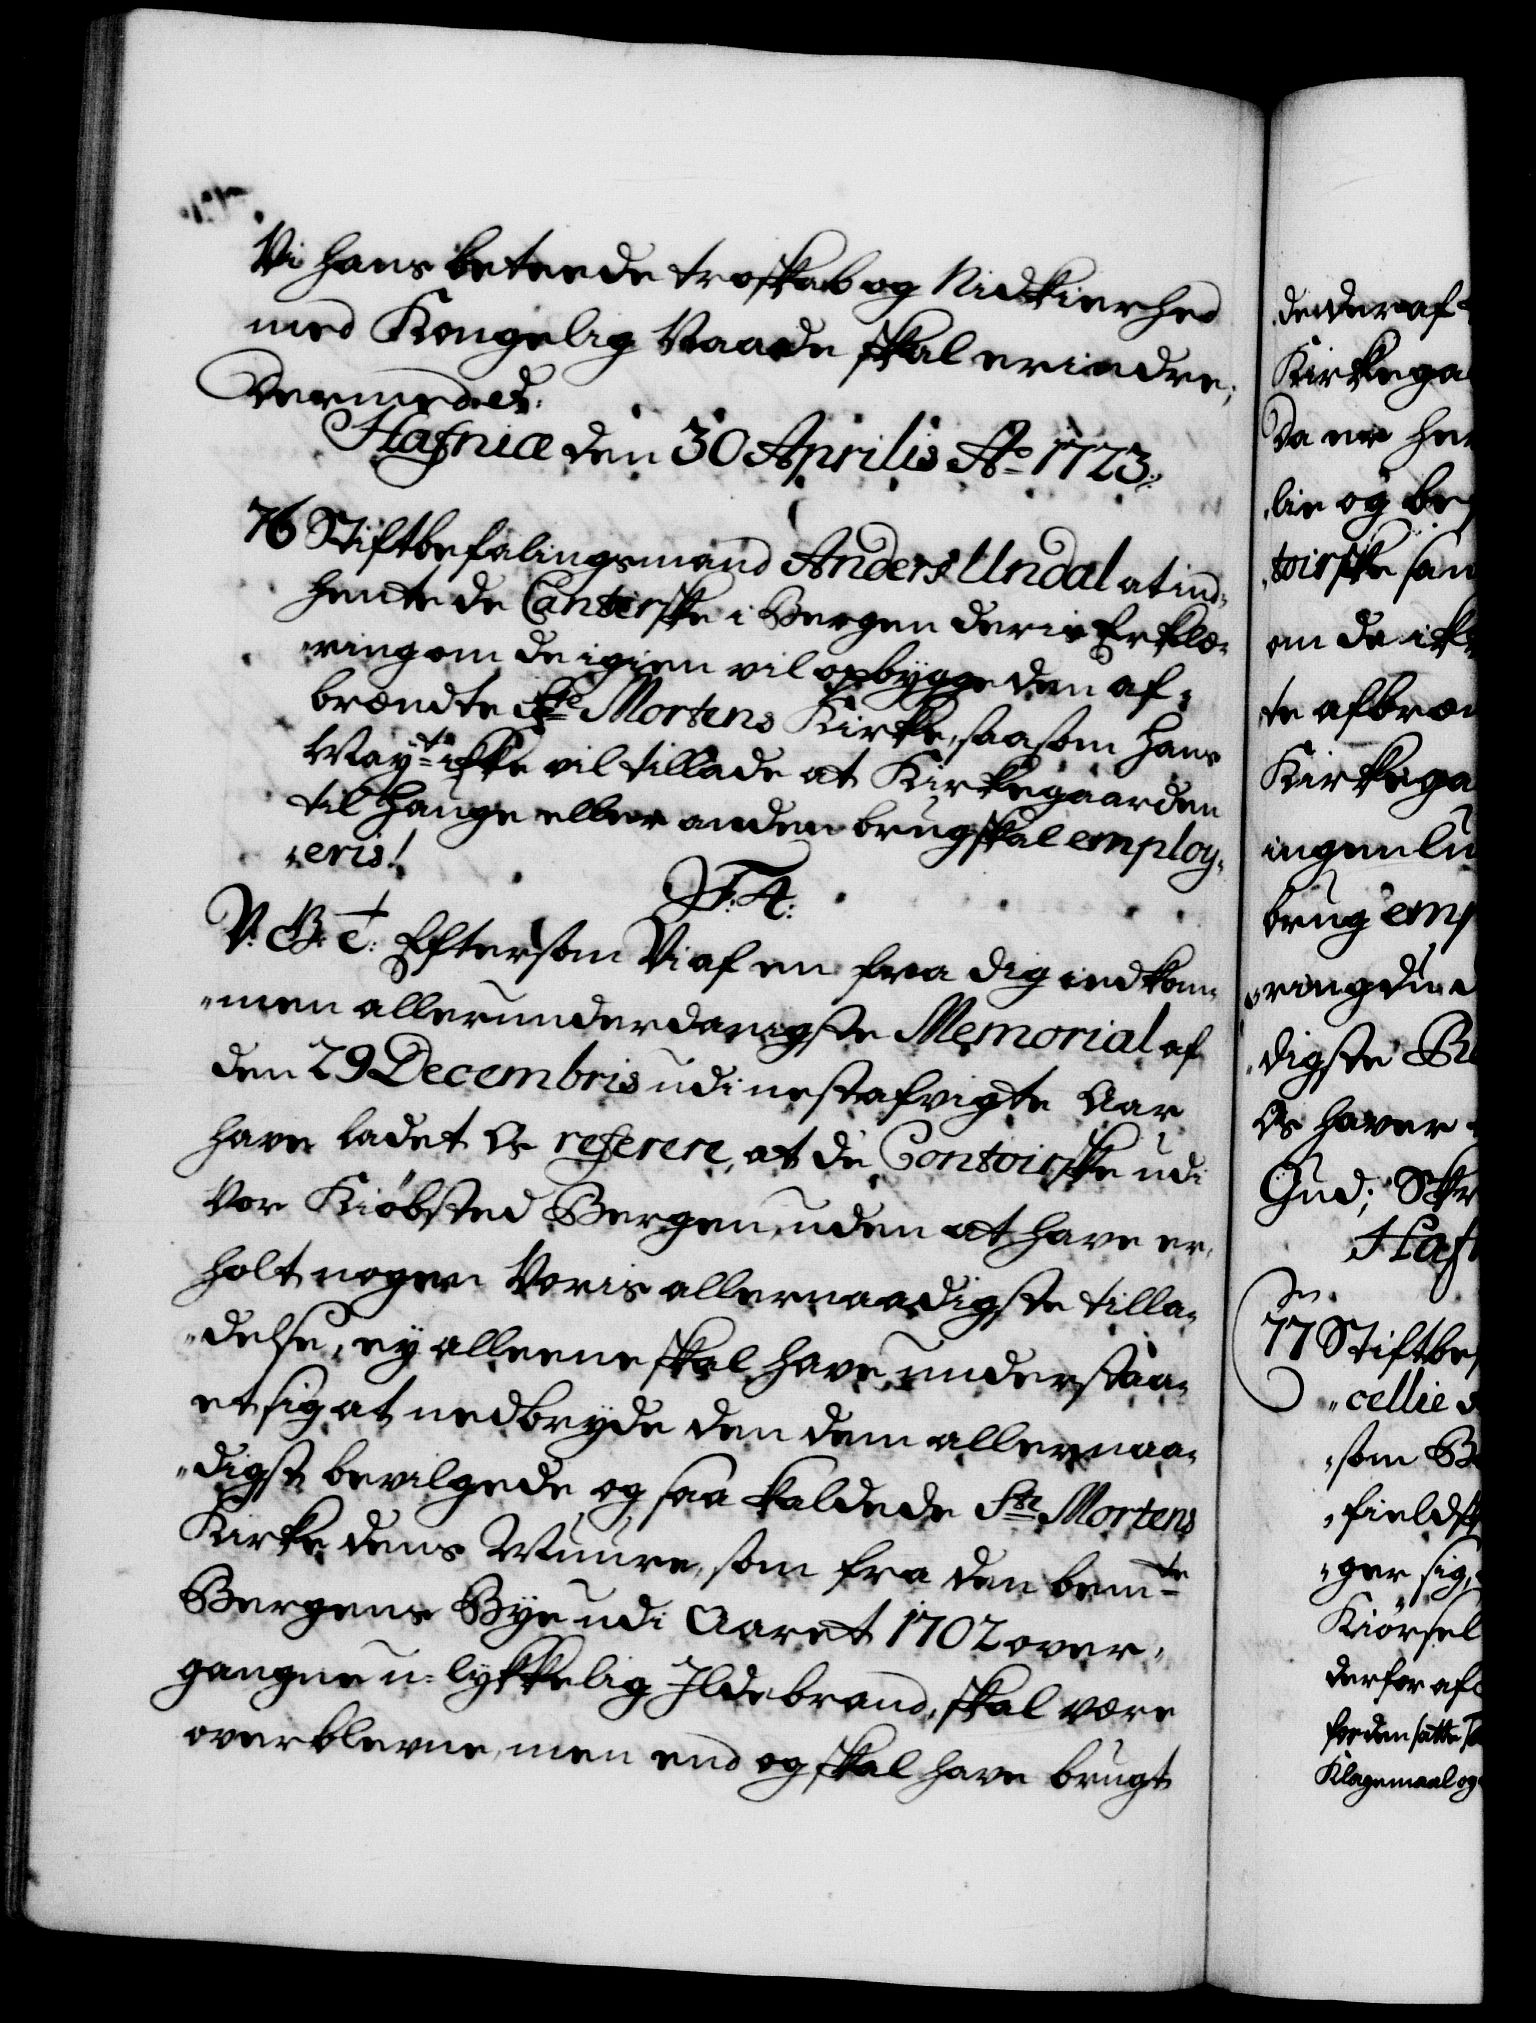 Vi hans beteede troskab og Nidkierhed
med Kongelig Naade skal erindre;
Dermed etc.
Hafniæ den 30 Aprilis Ao 1723.
76 Stiftbefalingsmand Anders Undal at ind-
hente de Cantorske i Bergen deris Erklæ-
ring om de igien vil opbygge den af-
brændte Ste Mortens Kirke, saasom Hans
Mayts ikke vil tillade at Kirkegaarden
til Hauge eller anden brug skal employ-
eris!
F: 4:
V. G. T: Eftersom Vi af en fra dig indkom-
men allerunderdanigste Memorial af
den 29 Decembris udi nestafvigte Aar
have ladet Os referere, at de Contoirske udi
Vor Kiöbsted Bergen, uden at have er-
holt nogen Voris allernaadigste tilla-
delse, ey alleene skal have understaa-
et sig at nedbryde den dem allernaa-
digst bevilgede og saa kaldede Ste Mortens
Kirke dens Muure, som fra den bemte
Bergens Bye udi Aaret 1702 over-
gangne u-lykkelig Ildebrand, skal være
overblevne, men end og skal have brugt
Kirkega
Da er
lie og be
toirske
om de ikk
te afbræn
Kirkega
ingenlu
brug emp
digste
Os haver
Gud; Skr
Haf
77 Stiftbef
cellie
som
fields
ger sig,
Kiørsel
derfor
Klagemaal og